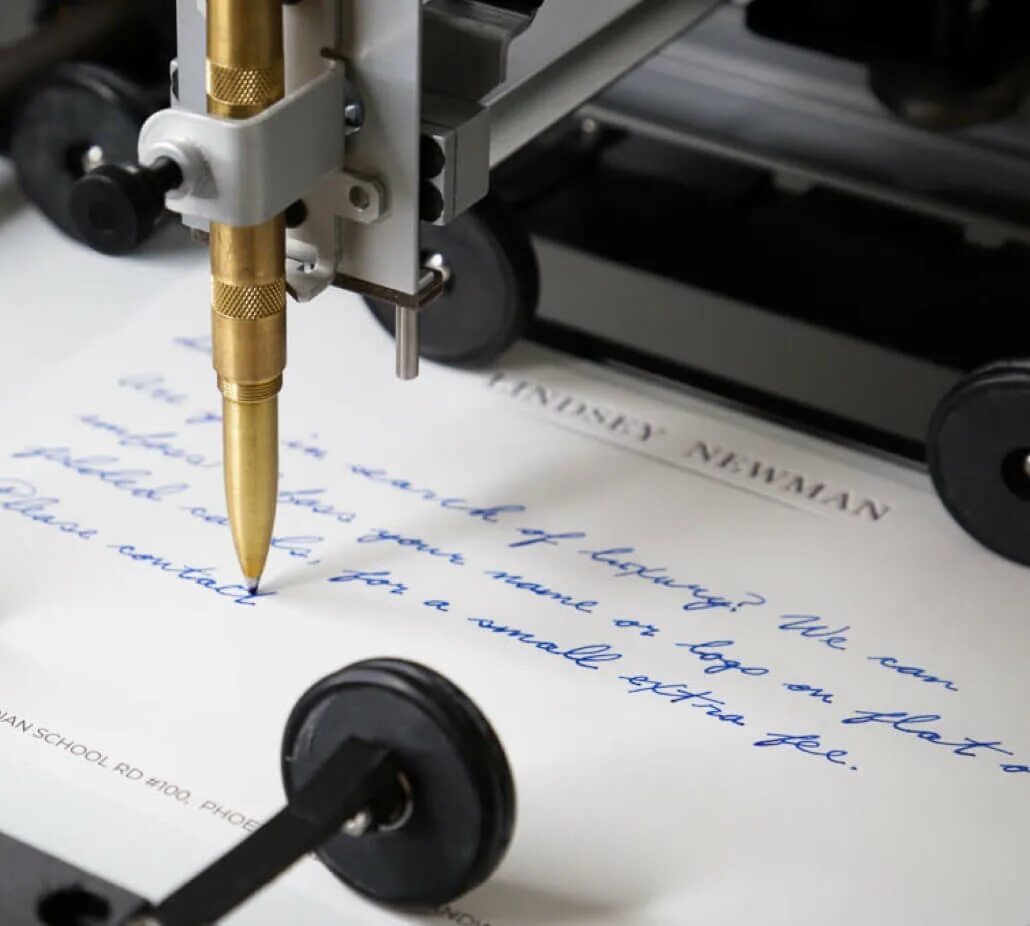 LINDSEY NEWMAN
Are in search of luxury? We can
your name or logo on flat
folded for a small extra fee.
Please contact
DIAN SCHOOL RD #100, PHOE